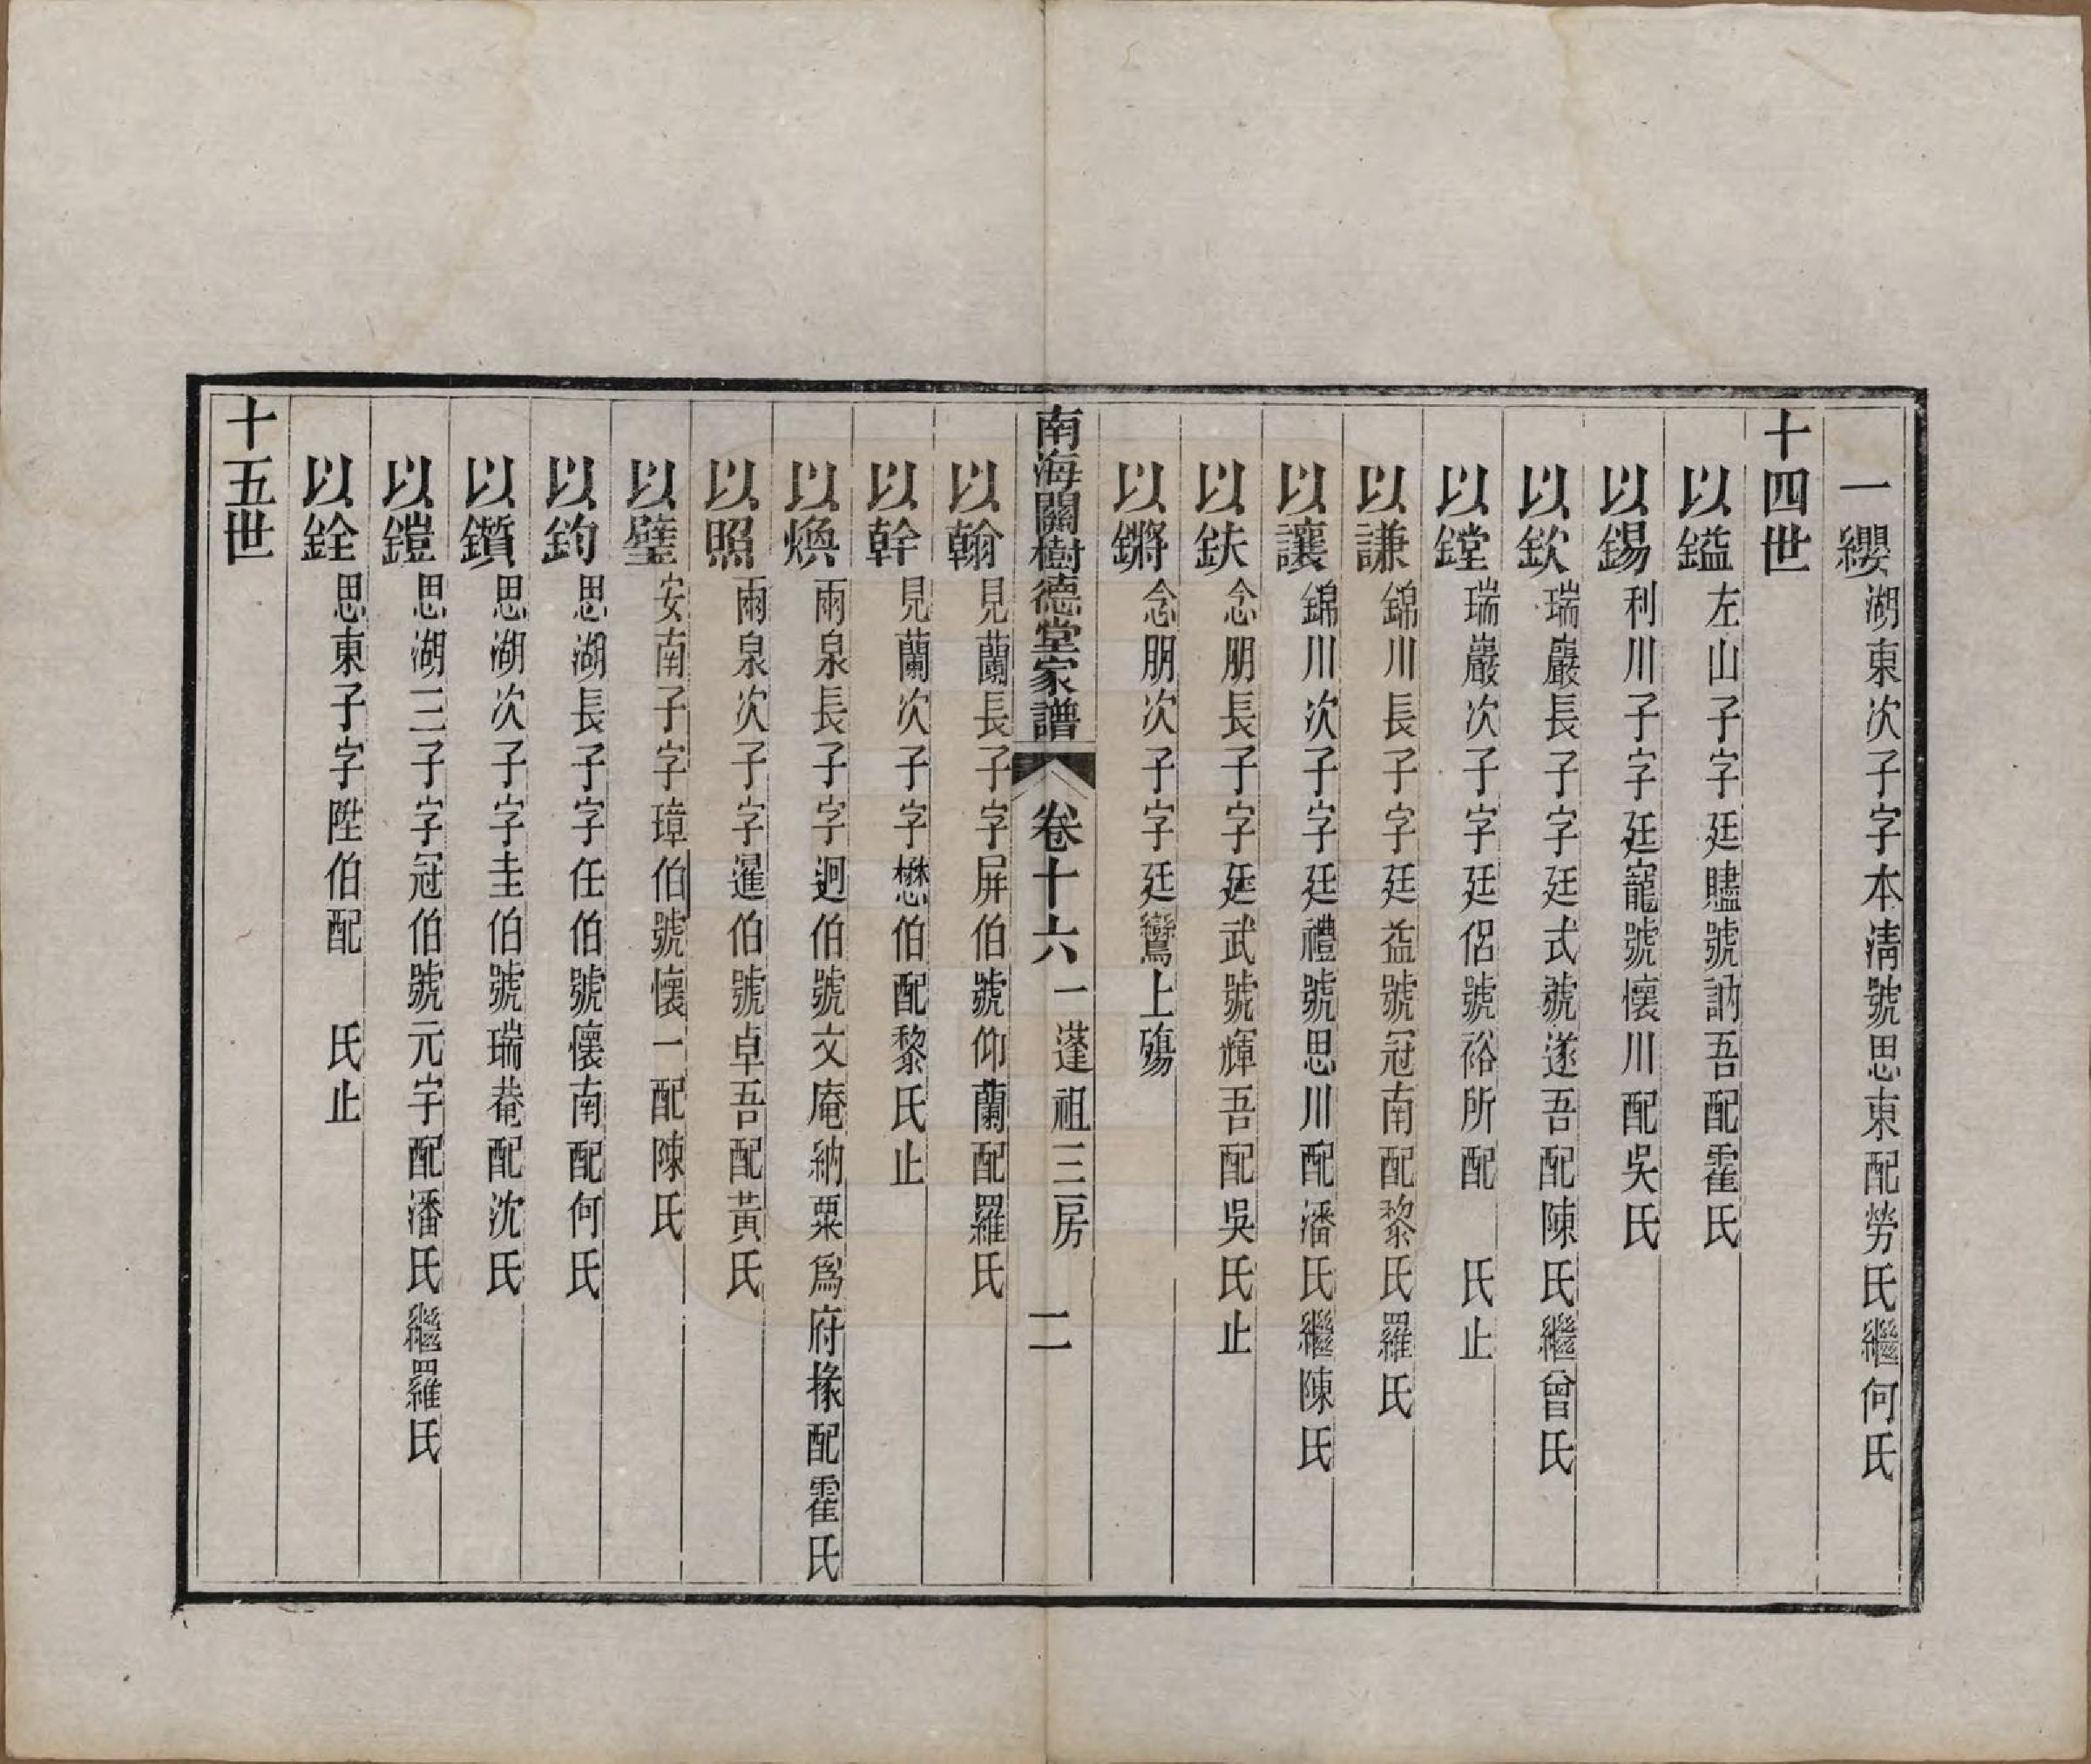 一纓湖東次子字本清號思東配勞氏繼何氏
十四世
以鎰左山子字廷贐號訥吾配霍氏
以錫利川子字廷寵號懷川配吳氏
以欽瑞巖長子字廷式號遂吾配陳氏繼曾氏
以鏜瑞巖次子字廷侶號裕所配　氏止
以謙錦川長子字廷益號冠南配黎氏羅氏
以讓錦川次子字廷禮號思川配潘氏繼陳氏
以鈇念朋長子字廷武號輝吾配吳氏止
以鏘念朋次子字廷鸞上殤
南海關樹德堂家譜　卷十六　一蓬祖三房　二
以翰見蘭長子字屏伯號仰蘭配羅氏
以幹見蘭次子字懋伯配黎氏止
以煥雨泉長子字迥伯號文庵納粟爲府掾配霍氏
以照雨泉次子字暹伯號卓吾配黃氏
以璧安南子字璋伯號懷一配陳氏
以鈞思湖長子字任伯號懷南配何氏
以鑕思湖次子字圭伯號瑞菴配沈氏
以鎧思湖三子字冠伯號元宇配潘氏繼羅氏
以銓思東子字陞伯配　氏止
十五世